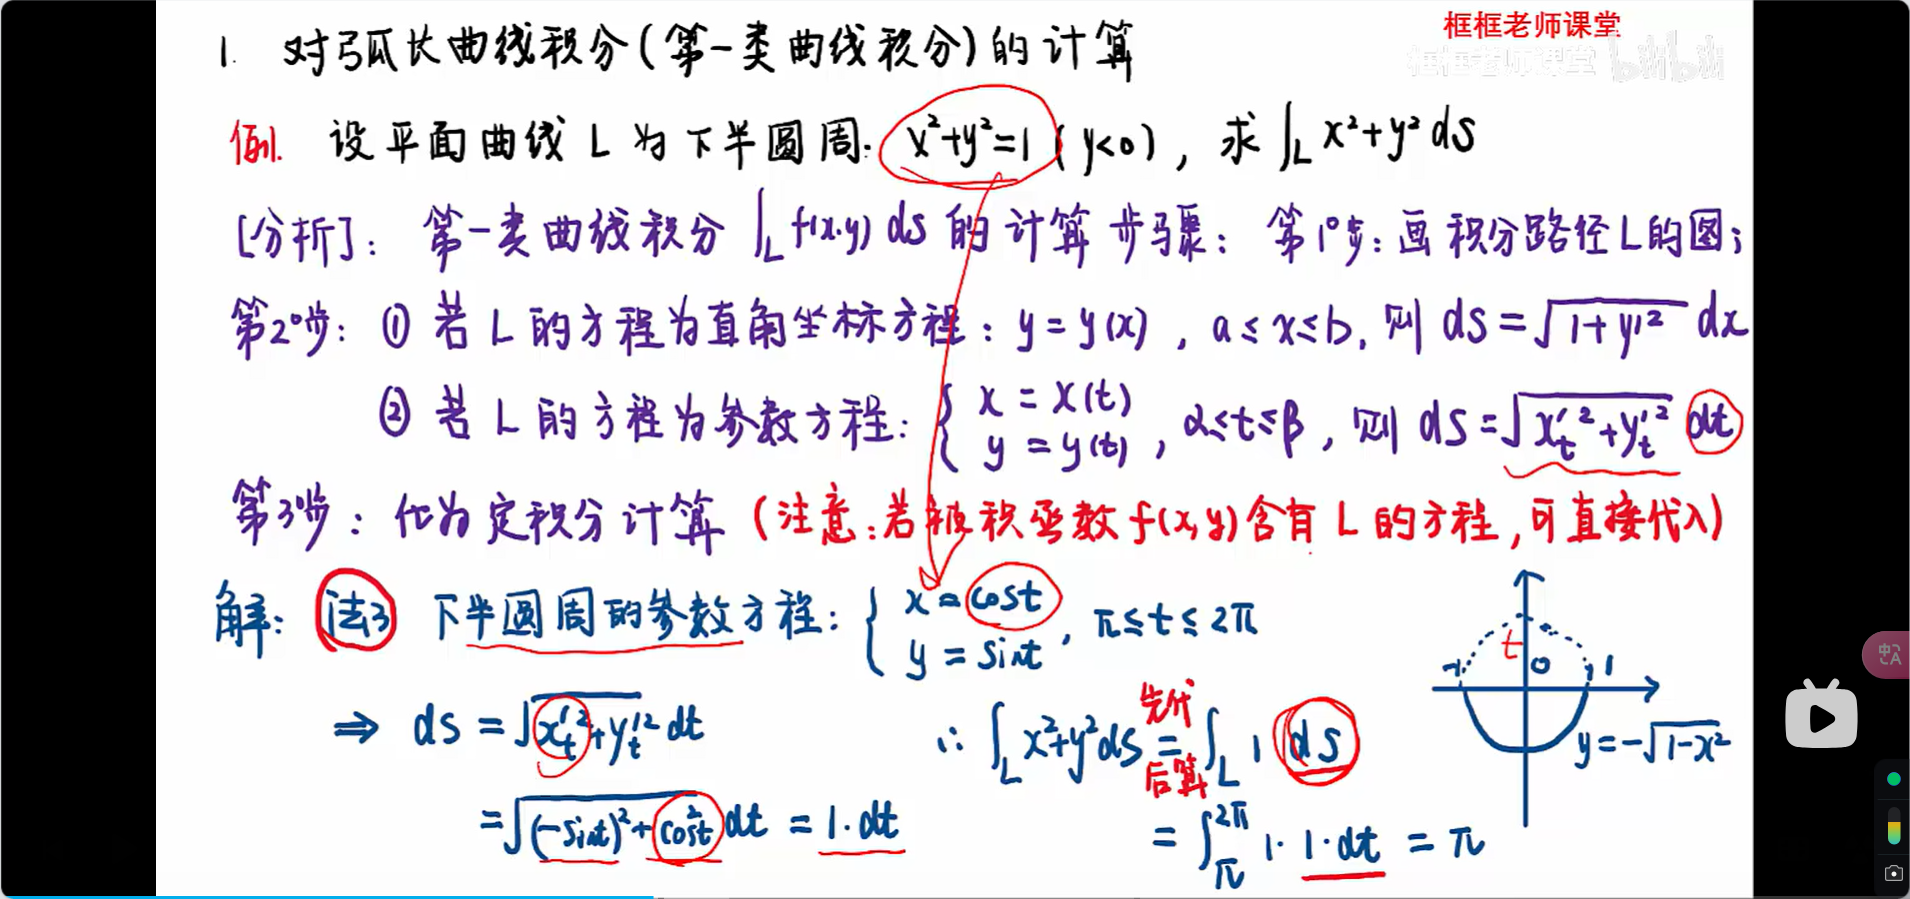 框框老师课堂
框框老师课堂 bilibili
1. 对弧长曲线积分(第一类曲线积分)的计算
例1. 设平面曲线 L 为下半圆周: x²+y²=1 (y<0), 求 ∫_L x²+y² ds
[分析]: 第一类曲线积分 ∫_L f(x,y) ds 的计算步骤: 第1°步: 画积分路径L的图;
第2°步: ① 若 L 的方程为直角坐标方程: y = y(x), a ≤ x ≤ b, 则 ds = √(1+y'²) dx
② 若 L 的方程为参数方程: { x = x(t) y = y(t), α≤t≤β, 则 ds = √(x'_t²+y'_t²) dt
第3°步: 化为定积分计算 (注意: 若被积函数 f(x,y) 含有 L 的方程, 可直接代入)
解: 法3 下半圆周的参数方程: { x = cost y = sint, π ≤ t ≤ 2π
⇒ ds = √(x'_t²+y'_t²) dt
= √((-sint)²+cos²t) dt = 1·dt
∴ ∫_L x²+y² ds = ∫_L 1 ds
先代
后算
= ∫_π^2π 1·1·dt = π
t
-1 0 1
y = -√(1-x²)
中A